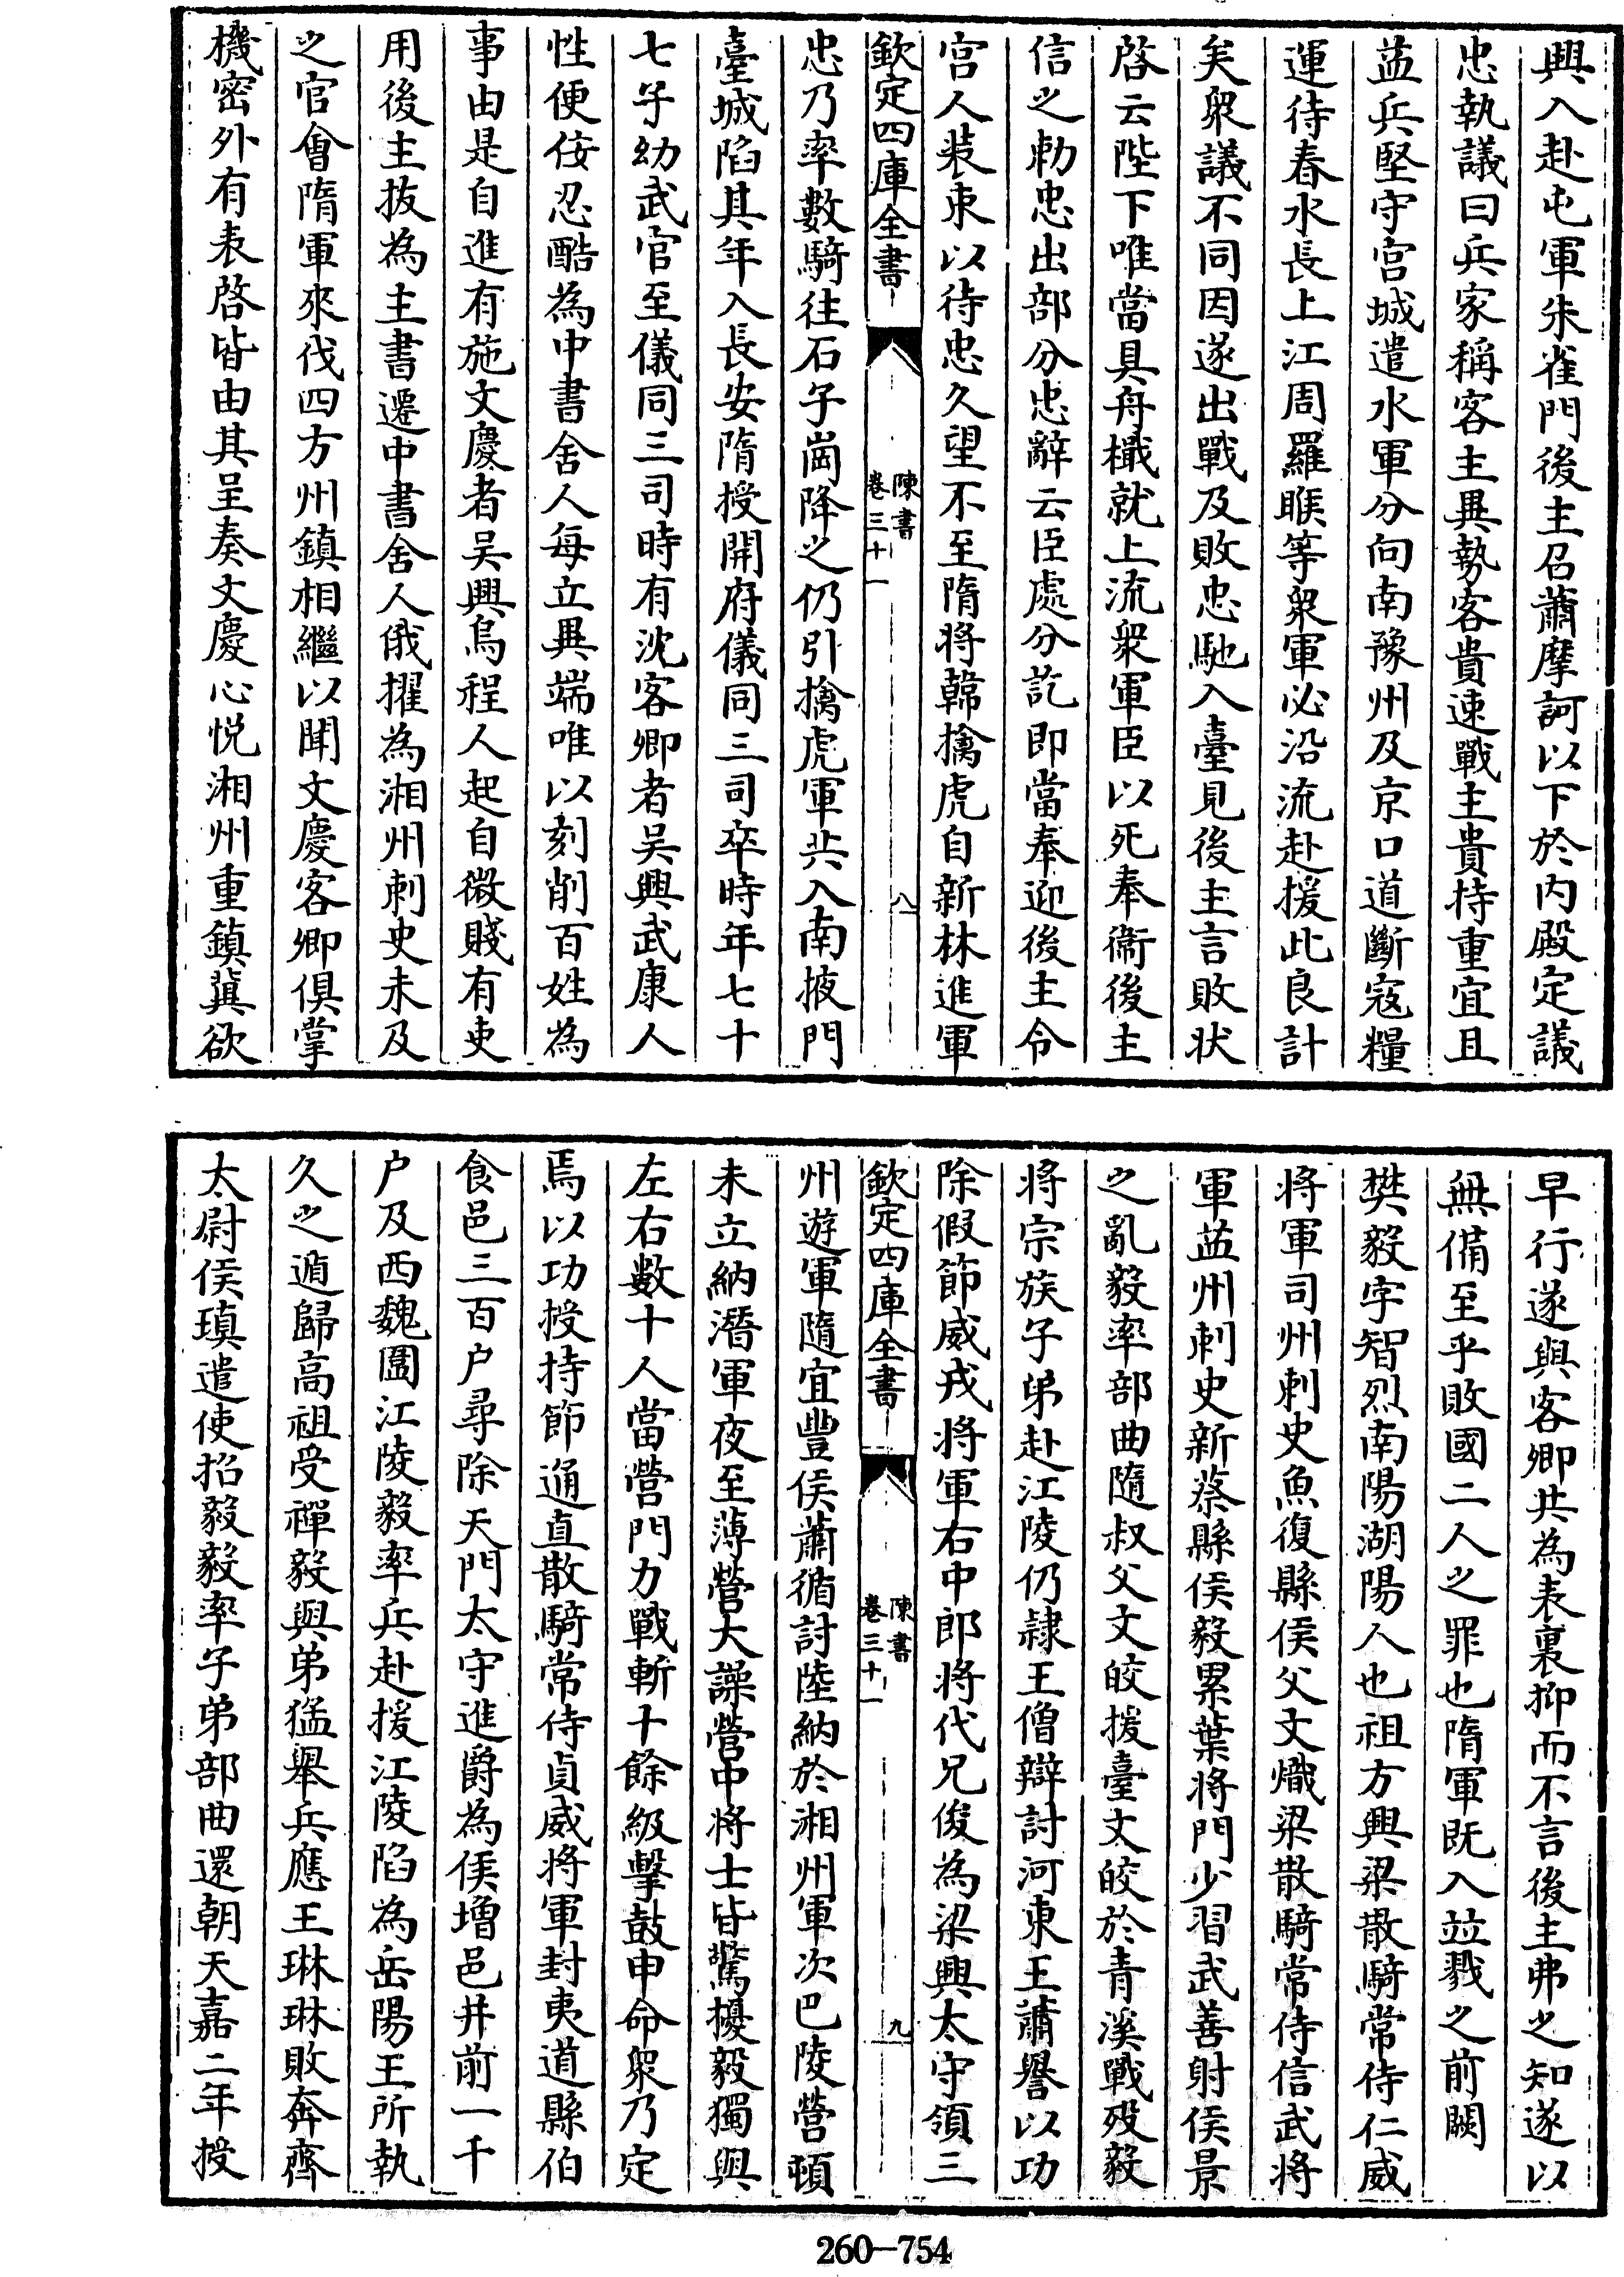 興入赴屯軍朱雀門後主召蕭摩訶以下於内殿定議
忠執議曰兵家稱客主異勢客貴速戰主貴持重宜且
益兵堅守宫城遣水軍分向南豫州及京口道斷寇糧
運待春水長上江周羅㬋等衆軍必沿流赴援此良計
矣衆議不同因遂出戰及敗忠馳入臺見後主言敗状
啓云陛下唯當具舟檝就上流衆軍臣以死奉衞後主
信之勅忠出部分忠辭云臣處分訖即當奉迎後主令
宫人装束以待忠久望不至隋将韓擒虎自新林進軍
欽定四庫全書
陳書
卷三十一
八
忠乃率數騎往石子崗降之仍引擒虎軍共入南掖門
臺城陷其年入長安隋授開府儀同三司卒時年七十
七子幼武官至儀同三司時有沈客卿者吴興武康人
性便佞忍酷為中書舍人每立異端唯以刻削百姓為
事由是自進有施文慶者吴興烏程人起自微賤有吏
用後主拔為主書遷中書舍人俄擢為湘州刺史未及
之官會隋軍來伐四方州鎮相繼以聞文慶客卿俱掌
機密外有表啓皆由其呈奏文慶心悦湘州重鎮冀欲
早行遂與客卿共為表裏抑而不言後主弗之知遂以
無備至乎敗國二人之罪也隋軍既入竝戮之前闕
樊毅字智烈南陽湖陽人也祖方興梁散騎常侍仁威
将軍司州刺史魚復縣侯父文熾梁散騎常侍信武將
軍益州刺史新蔡縣侯毅累葉将門少習武善射侯景
之亂毅率部曲隨叔父文皎援臺文皎於青溪戰殁毅
将宗族子弟赴江陵仍隷王僧辯討河東王蕭譽以功
除假節威戎将軍右中郎将代兄俊為梁興太守領三
欽定四庫全書
陳書
卷三十一
九
州遊軍隨宜豐侯蕭循討陸納於湘州軍次巴陵營頓
未立納潛軍夜至薄營大譟營中将士皆驚擾毅獨與
左右數十人當營門力戰斬十餘級擊鼓申命衆乃定
焉以功授持節通直散騎常侍貞威将軍封夷道縣伯
食邑三百户尋除天門太守進爵為侯增邑并前一千
户及西魏圍江陵毅率兵赴援江陵陷為岳陽王所執
久之遁歸高祖受禪毅與弟猛舉兵應王琳琳敗奔齊
太尉侯瑱遣使招毅毅率子弟部曲還朝天嘉二年授
260-754